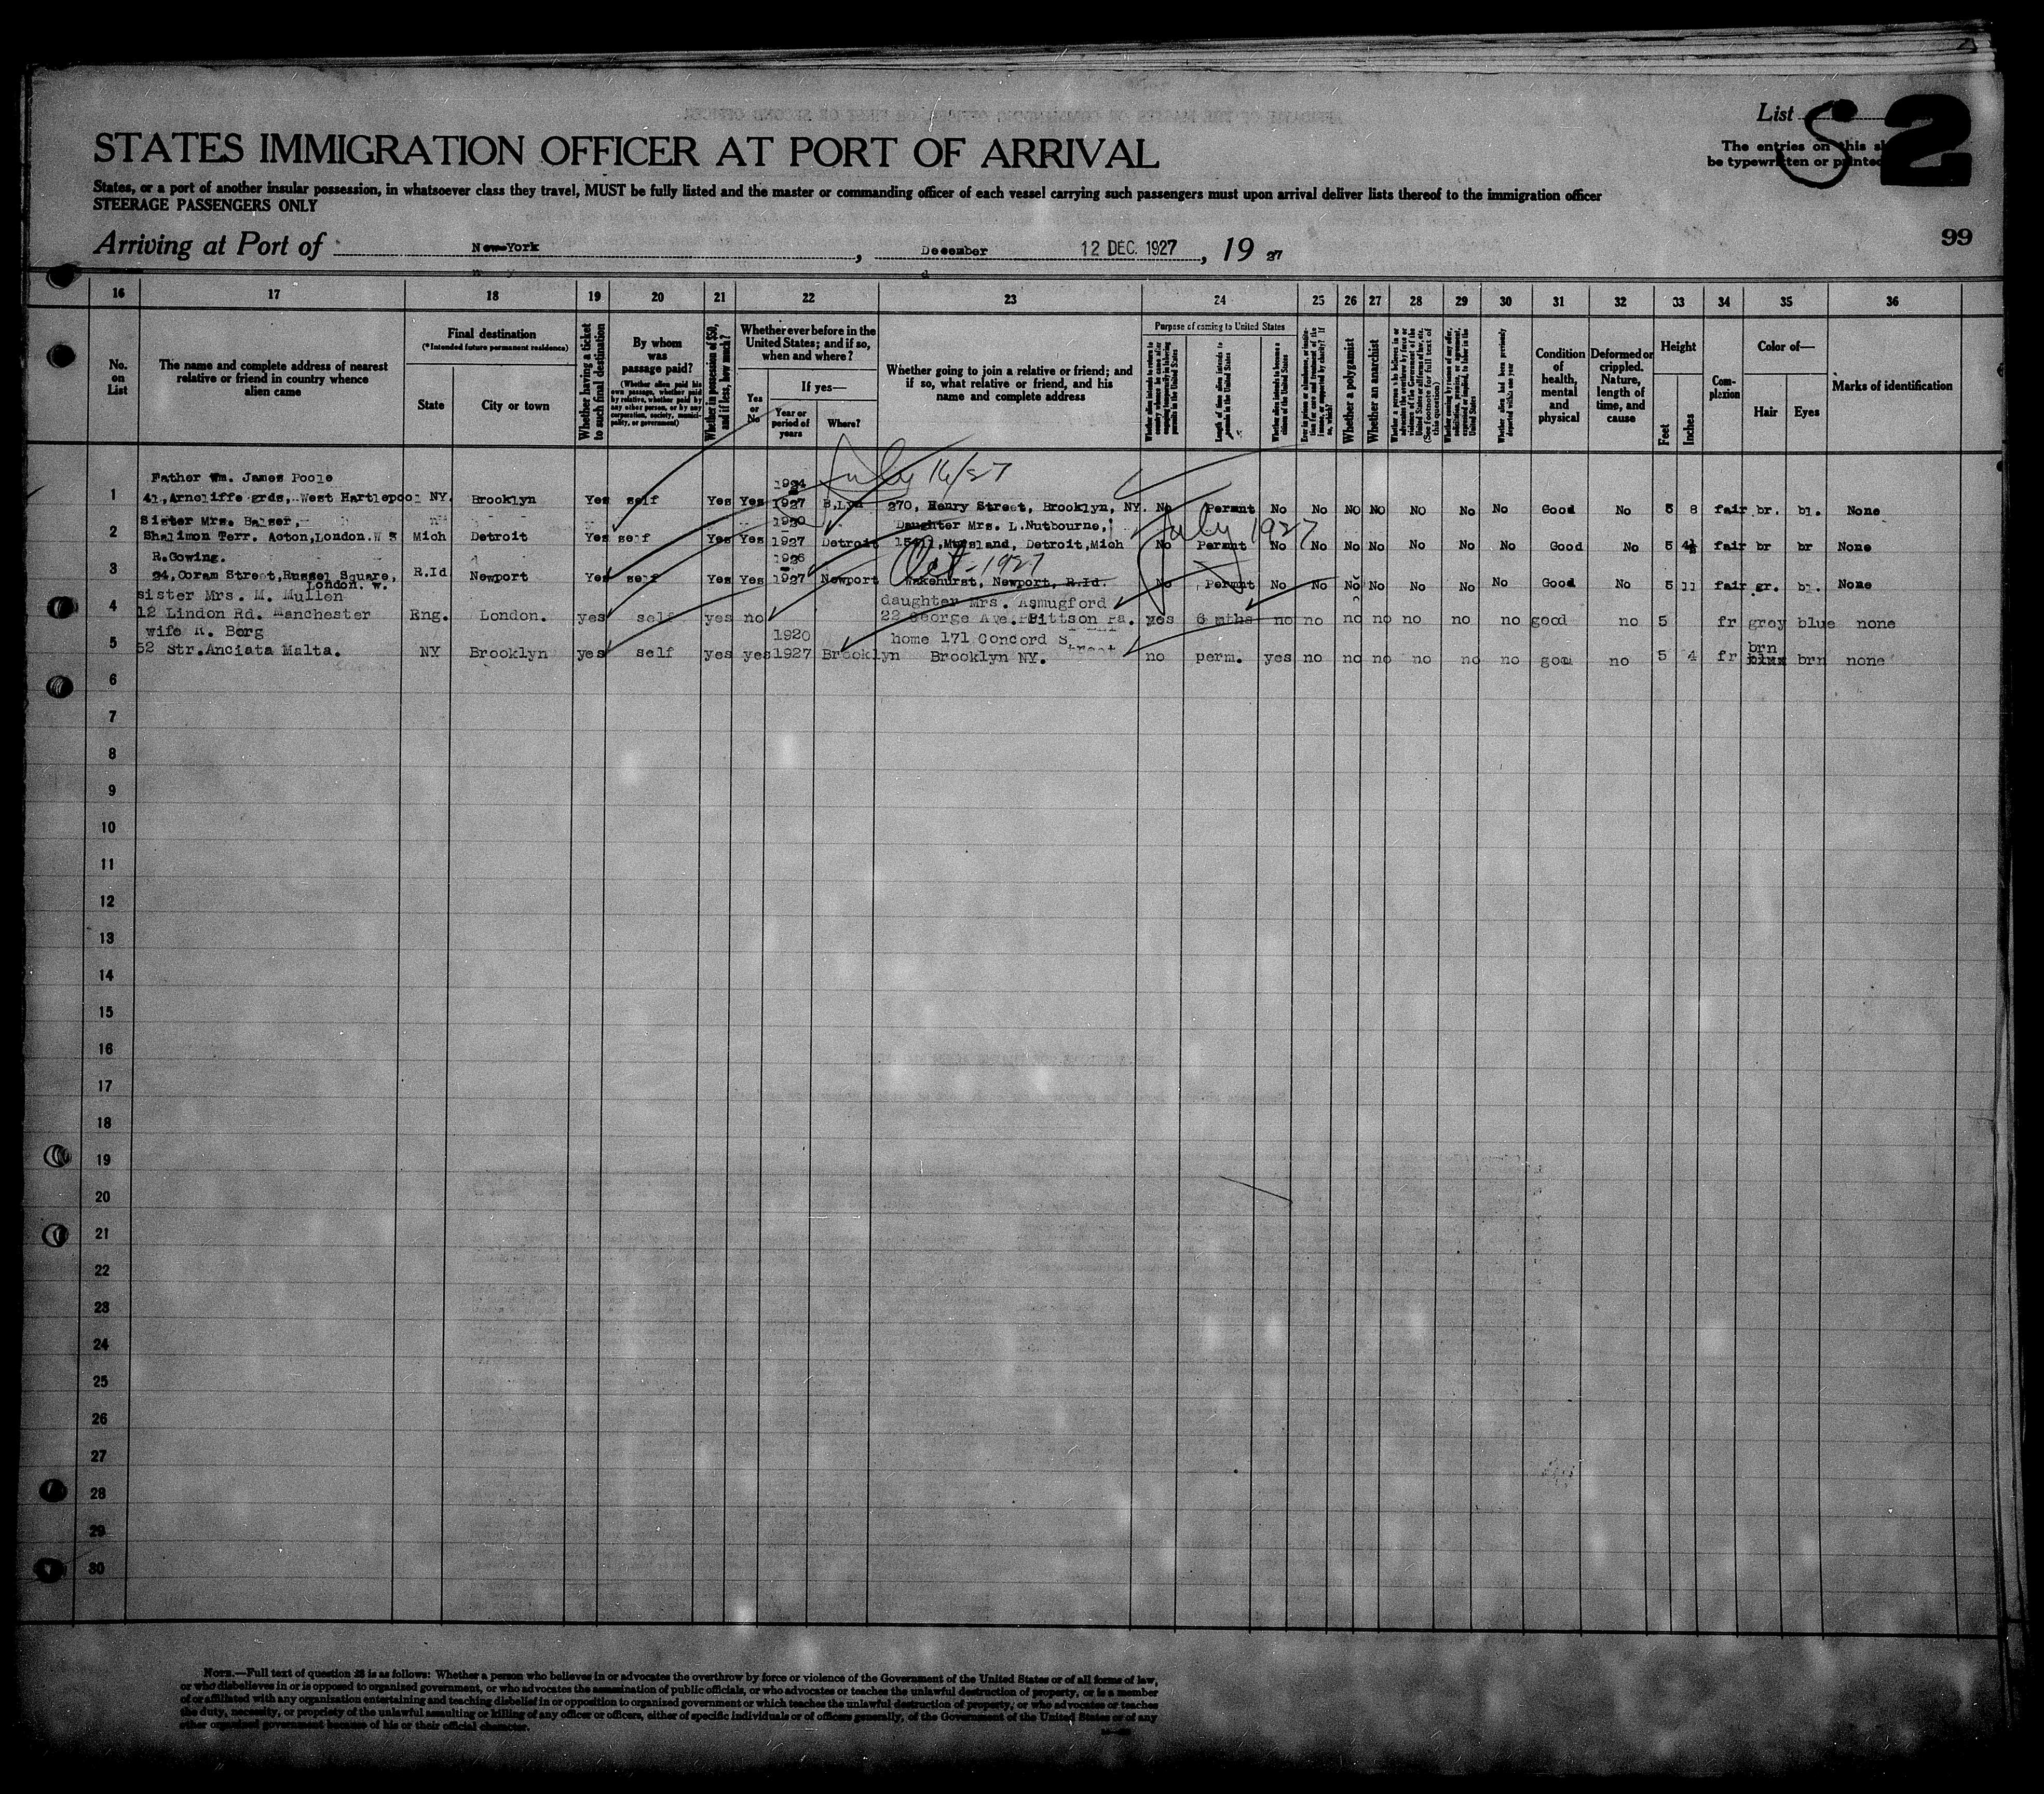 List S2
The entries on this
be typewritten or printed
STATES IMMIGRATION OFFICER AT PORT OF ARRIVAL
States, or a port of another insular possession, in whatsoever class they travel, MUST be fully listed and the master or commanding officer of each vessel carrying such passengers must upon arrival deliver lists thereof to the immigration officer
STEERAGE PASSENGERS ONLY
Arriving at Port of New York, December 12 DEC. 1927, 19 27
99
16 17 18 19 20 21 22 23 24 25 26 27 28 29 30 31 32 33 34 35 36
No. on List
The name and complete address of nearest relative or friend in country whence alien came
Final destination
(*Intended future permanent residence)
State
City or town
Whether having a ticket to such final destination
By whom was passage paid?
(Whether alien paid his own passage, whether paid by relative, whether paid by any other person, or by any corporation, society, municipality, or government)
Whether in possession of $50, and if less, how much?
Whether ever before in the United States; and if so, when and where?
Yes or No
If yes—
Year or period of years
Where?
Whether going to join a relative or friend; and if so, what relative or friend, and his name and complete address
Purpose of coming to United States
Length of time alien intends to remain in the United States
Whether alien intends to become a citizen of the United States
Whether a polygamist
Whether an anarchist
Whether alien had been previously deported within one year
Condition of health, mental and physical
Deformed or crippled. Nature, length of time, and cause
Height
Feet
Inches
Complexion
Color of—
Hair
Eyes
Marks of identification
July 16/27
Father Wm. James Poole 1924
1 41, Arncliffe grds, West Hartlepool NY. Brooklyn Yes self Yes Yes 1927 B.Lyn 270, Henry Street, Brooklyn, NY. No Permnt No No No No No No No Good No 5 8 fair br. bl. None
Sister Mrs. Balser, 1920 Daughter Mrs. L.Nutbourne, July 1927
2 Shalimon Terr. Acton, London. W 3 Mich Detroit Yes self Yes Yes 1927 Detroit Detroit, Mich No Permnt No No No No No No No Good No 5 4½ fair br br None
R.Gowing. 1926 Oct-1927
3 24, Coram Street, Russel Square, London. W. R.Id Newport Yes self Yes Yes 1927 Newport Wakehurst, Newport, R.Id. No Permnt No No No No No No No Good No 5 11 fair gr. bl. None
sister Mrs. M. Mullen daughter Mrs. Asmugford
4 12 Lindon Rd. Manchester Eng. London. yes self yes no 22 George Ave. Pittson Pa. yes 6 mths no no no no no no no good no 5 fr grey blue none
wife R. Borg 1920 home 171 Concord Street
5 52 Str. Anciata Malta. NY Brooklyn yes self yes yes 1927 Brooklyn Brooklyn NY. no perm. yes no no no no no no good no 5 4 fr brn brn none
6
7
8
9
10
11
12
13
14
15
16
17
18
19
20
21
22
23
24
25
26
27
28
29
30
NOTE.—Full text of question 28 is as follows: Whether a person who believes in or advocates the overthrow by force or violence of the Government of the United States or of all forms of law,
or who disbelieves in or is opposed to organized government, or who advocates the assassination of public officials, or who advocates or teaches the unlawful destruction of property, or is a member
of or affiliated with any organization entertaining and teaching disbelief in or opposition to organized government or which teaches the unlawful destruction of property, or who advocates or teaches
the duty, necessity, or propriety of the unlawful assaulting or killing of any officer or officers, either of specific individuals or of officers generally, of the Government of the United States or of any
other organized government because of his or their official character.